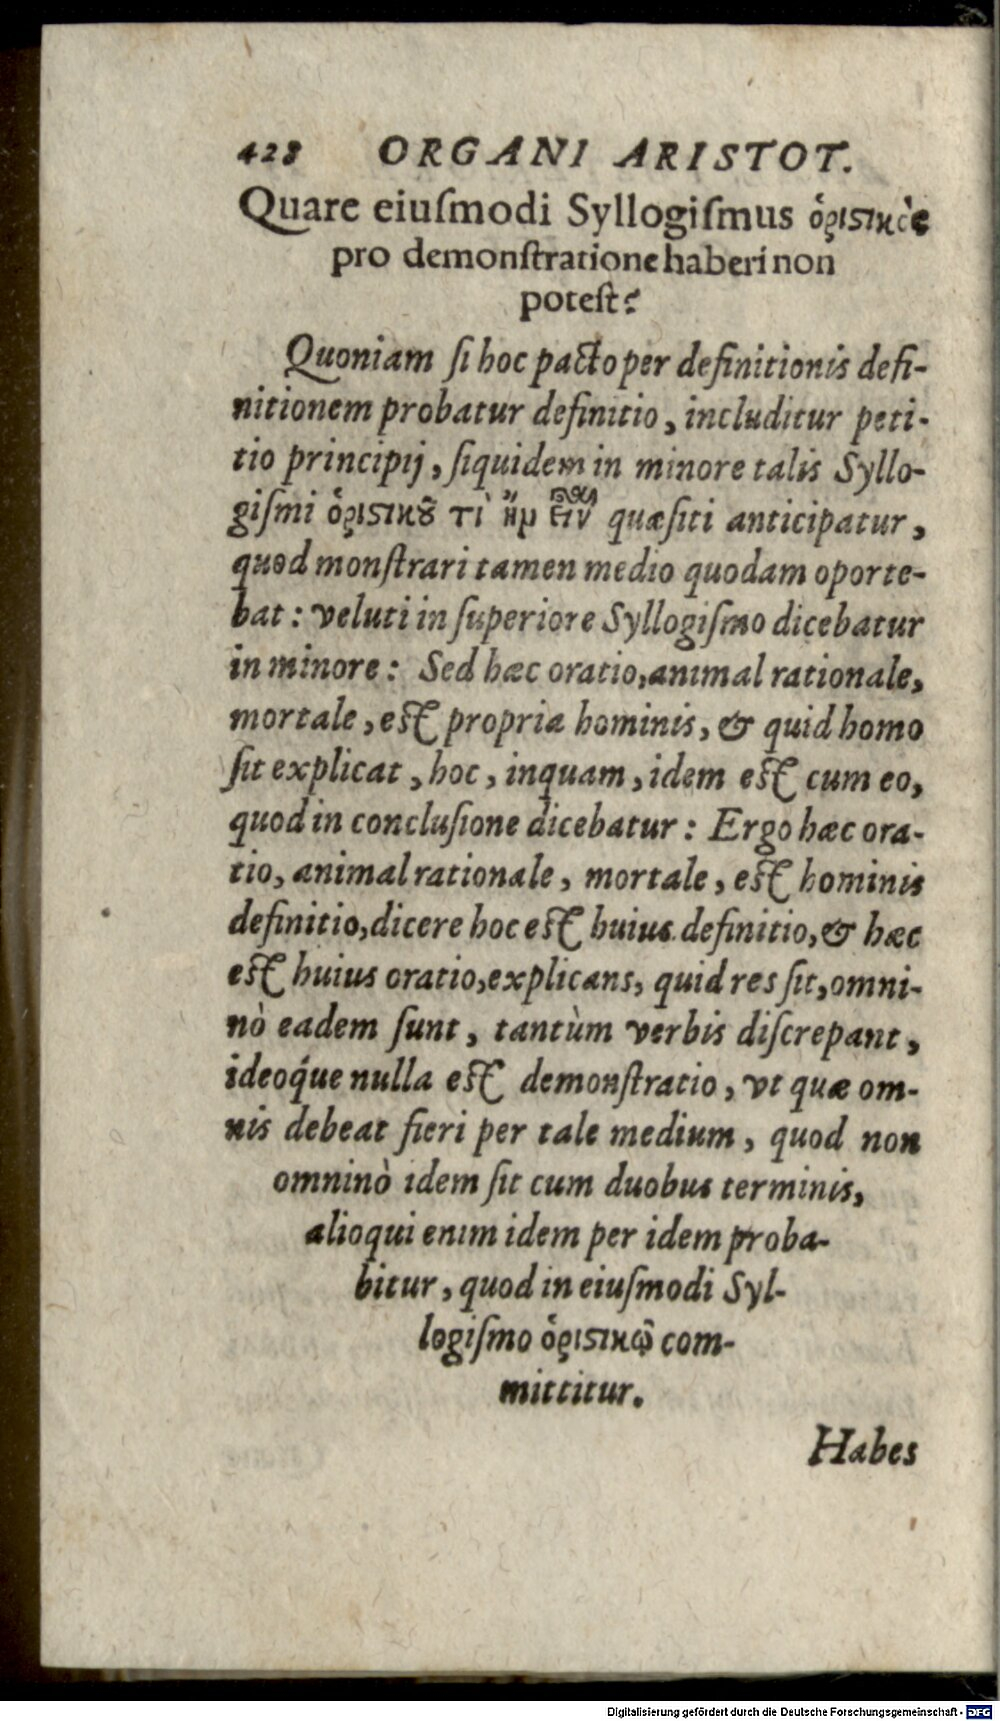 428 ORGANI ARISTOT.
Quare eiuſmodi Syllogiſmus ὁριστικὸς
pro demonſtratione haberi non
poteſt?
Quoniam ſi hoc pacto per definitionis defi-
nitionem probatur definitio, includitur peti-
tio principij, ſiquidem in minore talis Syllo-
giſmi ὁριστικοῦ τὶ ἦν εἶναι quæſiti anticipatur,
quod monſtrari tamen medio quodam oporte-
bat: veluti in ſuperiore Syllogiſmo dicebatur
in minore: Sed hæc oratio, animal rationale,
mortale, eſt propria hominis, & quid homo
ſit explicat, hoc, inquam, idem eſt cum eo,
quod in concluſione dicebatur: Ergo hæc ora-
tio, animal rationale, mortale, eſt hominis
definitio, dicere hoc eſt huius definitio, & hæc
eſt huius oratio, explicans, quid res ſit, omni-
nò eadem ſunt, tantùm verbis diſcrepant,
ideoq́ue nulla eſt demonſtratio, vt quæ om-
nis debeat fieri per tale medium, quod non
omninò idem ſit cum duobus terminis,
alioqui enim idem per idem proba-
bitur, quod in eiuſmodi Syl-
logiſmo ὁριστικῷ com-
mittitur.
Habes
Digitalisierung gefördert durch die Deutsche Forschungsgemeinschaft - DFG